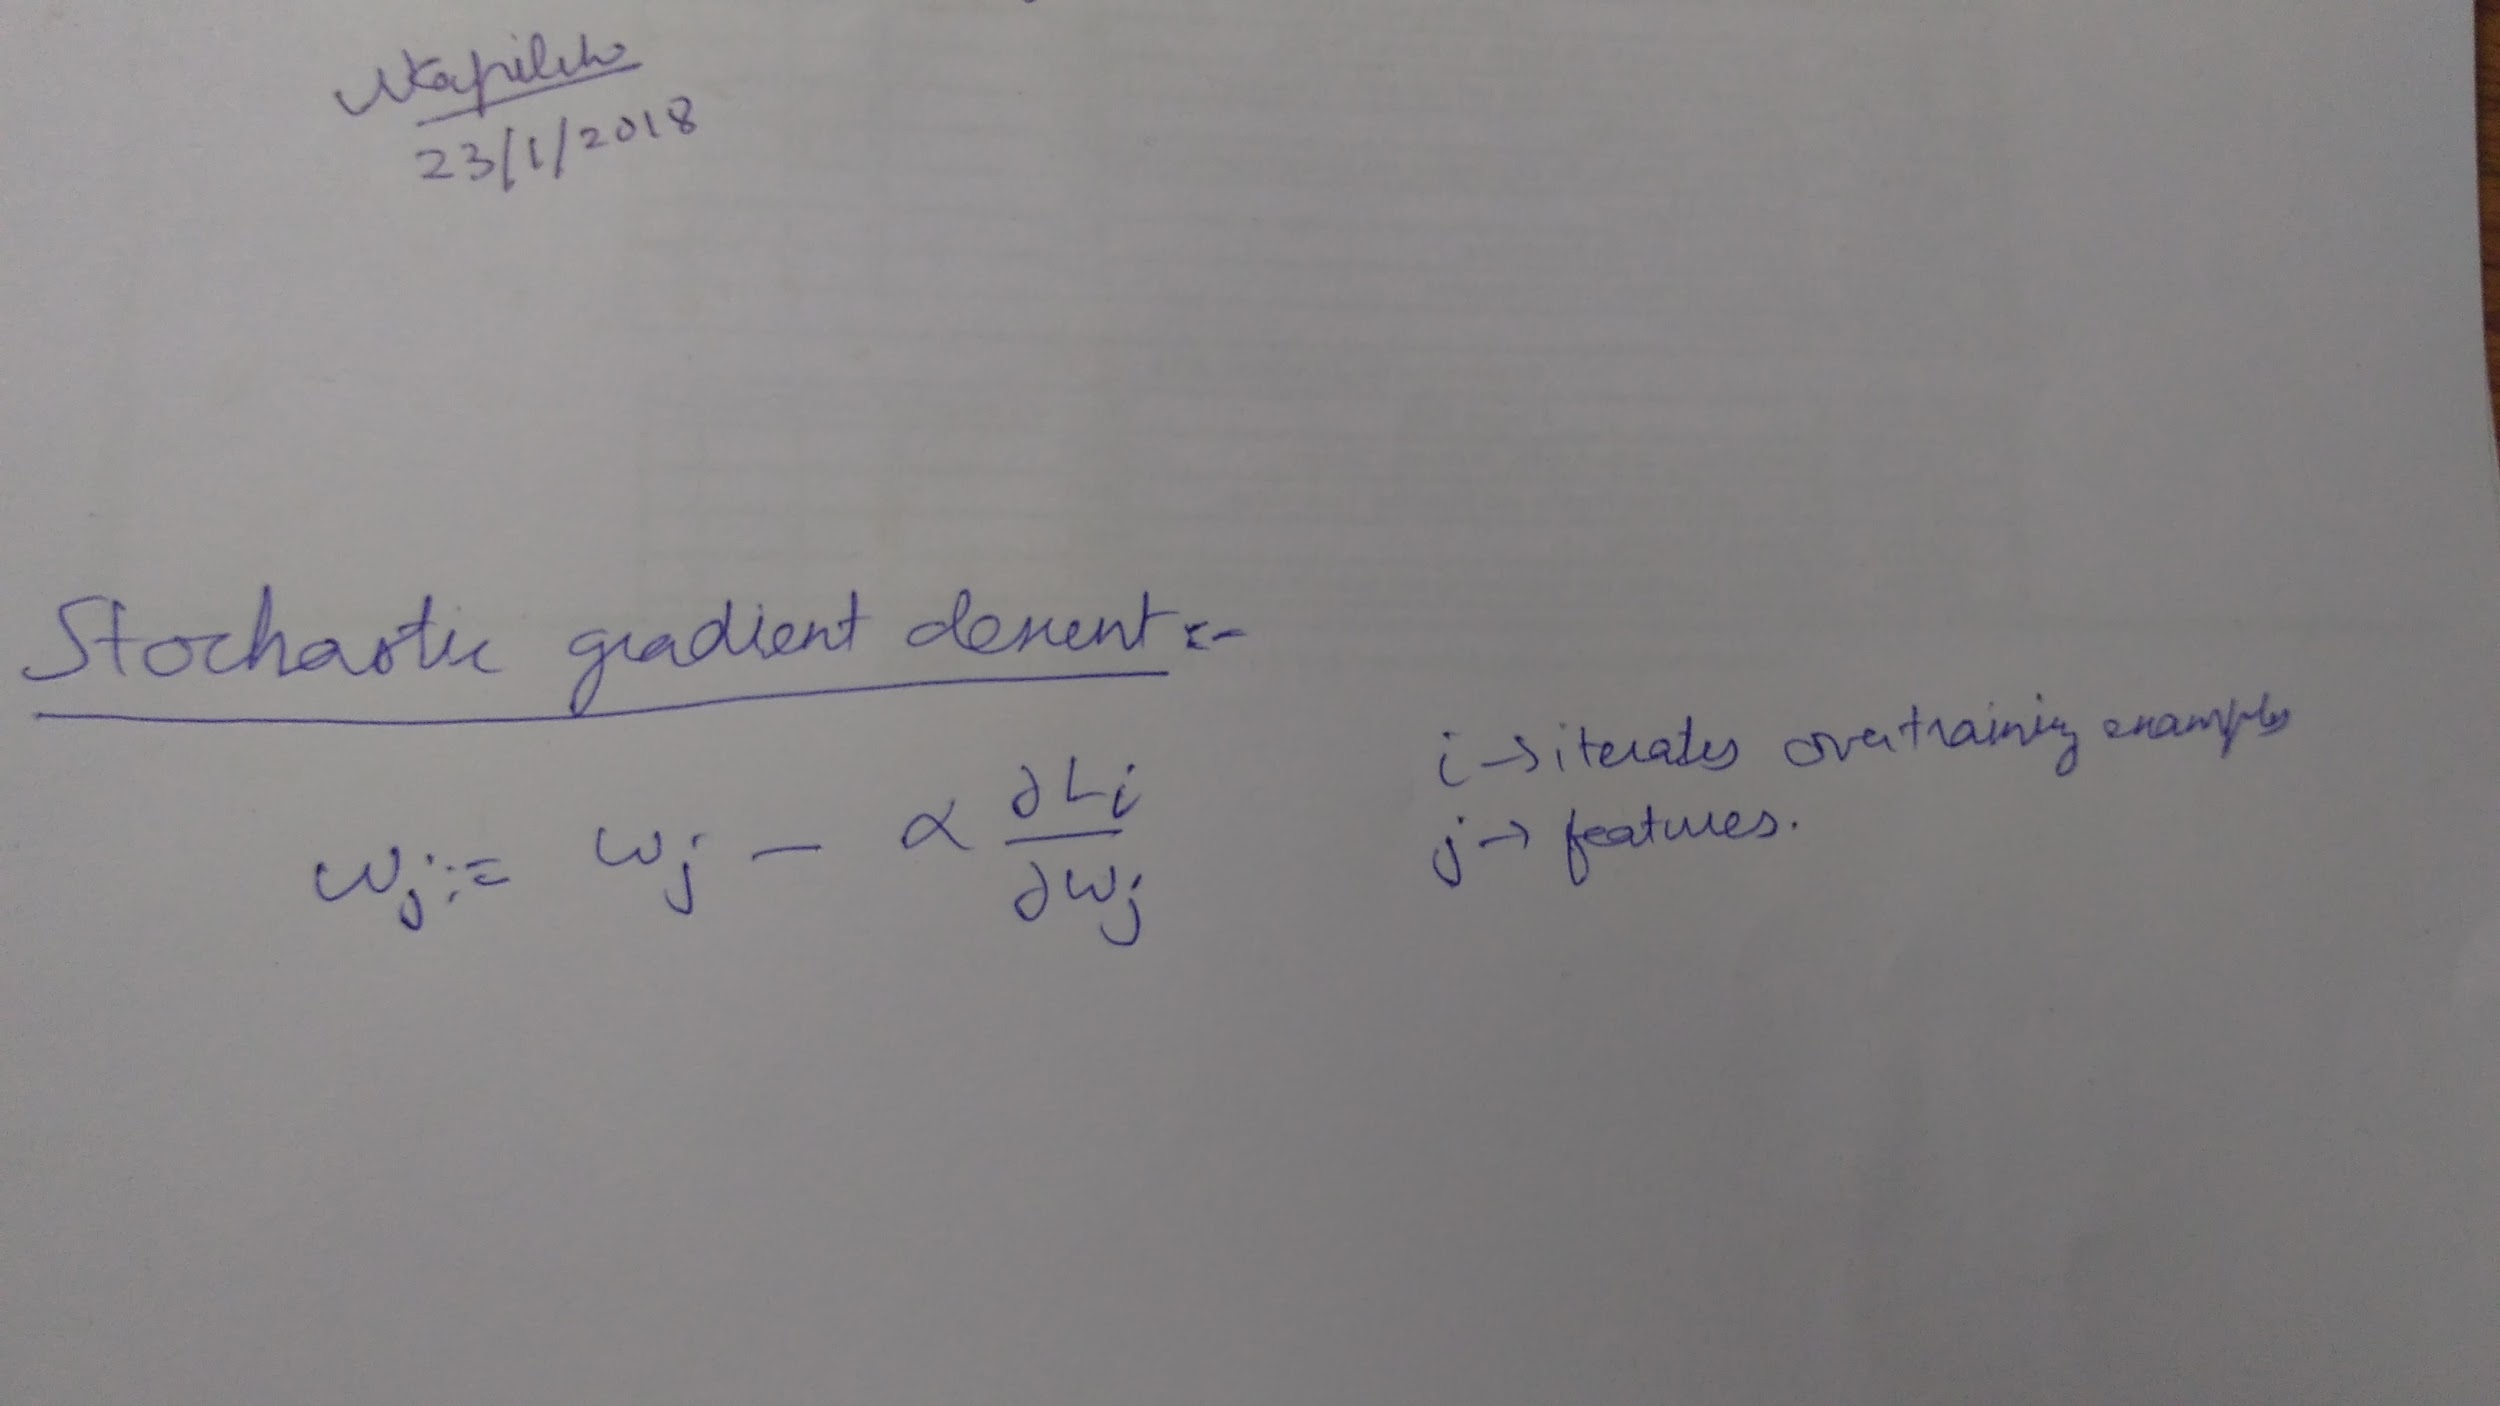 23/1/2018
Stochastic gradient descent :-
wj := wj - α ∂Li/∂wj
i → iterates over training examples
j → features.